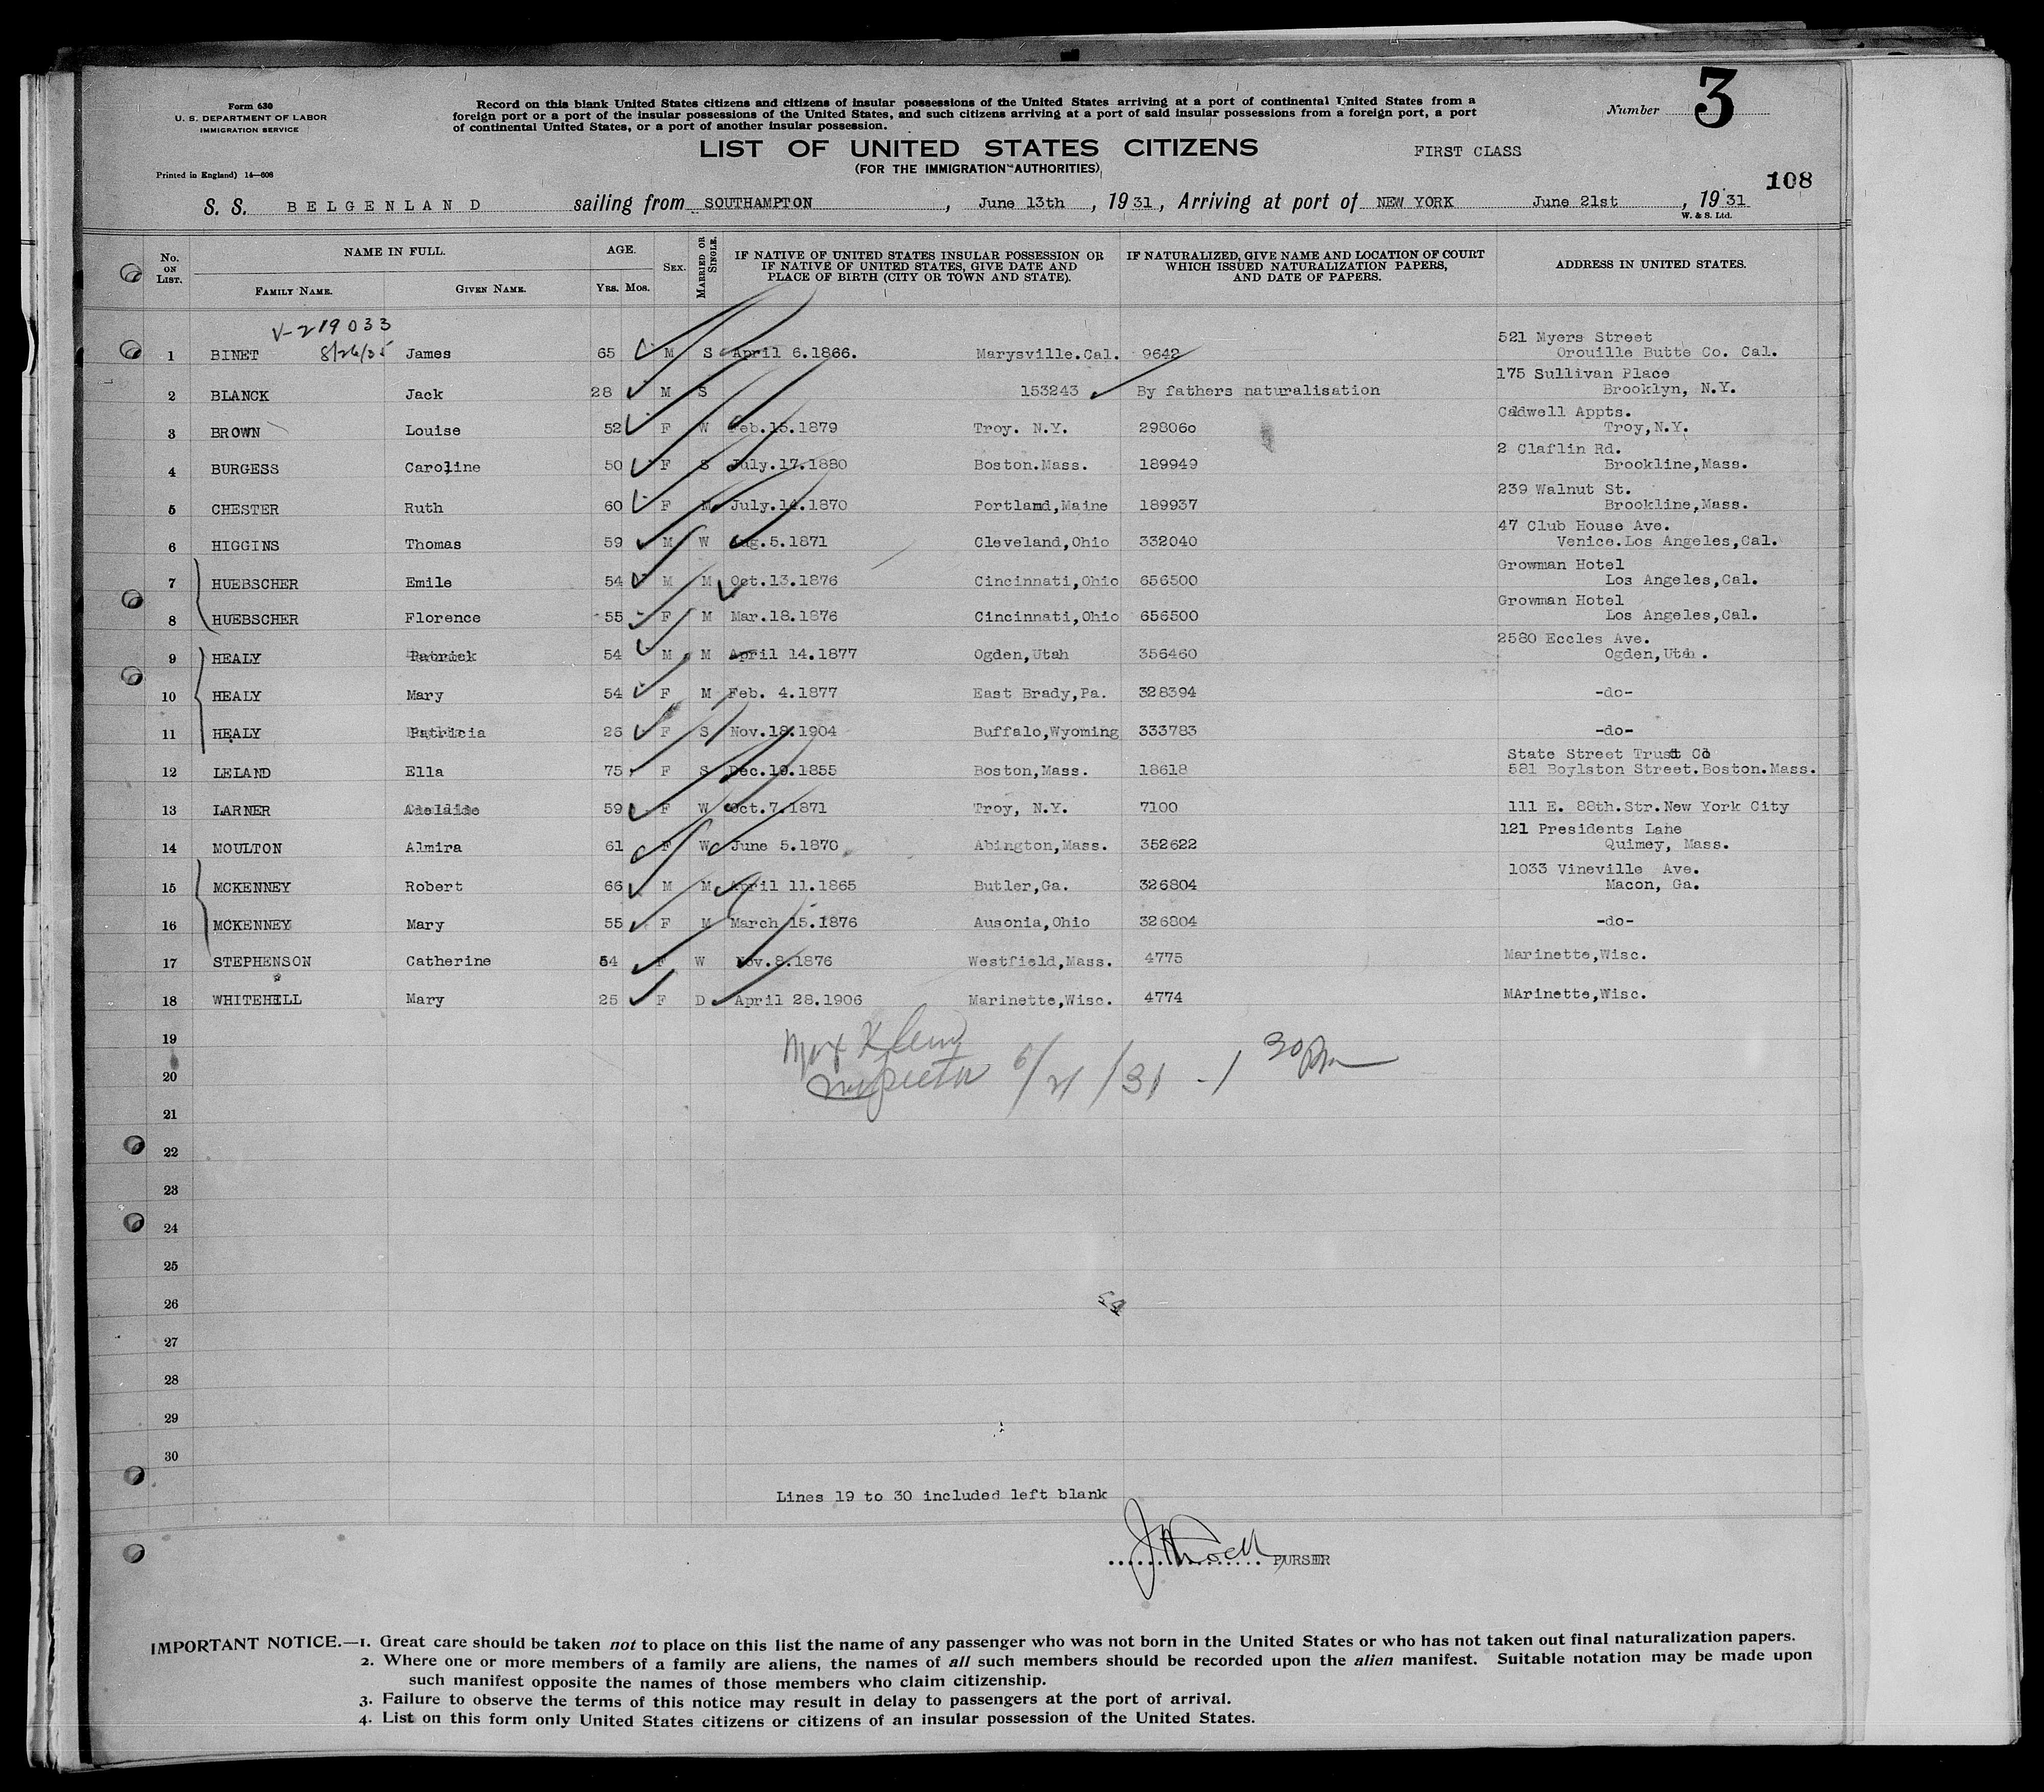 Form 630
U. S. DEPARTMENT OF LABOR
IMMIGRATION SERVICE
Printed in England) 14—608
Record on this blank United States citizens and citizens of insular possessions of the United States arriving at a port of continental United States from a
foreign port or a port of the insular possessions of the United States, and such citizens arriving at a port of said insular possessions from a foreign port, a port
of continental United States, or a port of another insular possession.
Number 3
LIST OF UNITED STATES CITIZENS
FIRST CLASS
(FOR THE IMMIGRATION AUTHORITIES)
108
S. S. BELGENLAND sailing from SOUTHAMPTON , June 13th , 1931, Arriving at port of NEW YORK June 21st , 1931
W. & S. Ltd.
No. ON LIST. NAME IN FULL. FAMILY NAME. GIVEN NAME. AGE. YRS. MOS. SEX. MARRIED OR SINGLE. IF NATIVE OF UNITED STATES INSULAR POSSESSION OR IF NATIVE OF UNITED STATES, GIVE DATE AND PLACE OF BIRTH (CITY OR TOWN AND STATE). IF NATURALIZED, GIVE NAME AND LOCATION OF COURT WHICH ISSUED NATURALIZATION PAPERS, AND DATE OF PAPERS. ADDRESS IN UNITED STATES.
V-219033
8/26/35
1 BINET James 65 M S April 6.1866. Marysville.Cal. 9642 521 Myers Street
Orouille Butte Co. Cal.
2 BLANCK Jack 28 M S 153243 By fathers naturalisation 175 Sullivan Place
Brooklyn, N.Y.
3 BROWN Louise 52 F W Feb.15.1879 Troy. N.Y. 298060 Cadwell Appts.
Troy,N.Y.
4 BURGESS Caroline 50 F S July.17.1880 Boston.Mass. 189949 2 Claflin Rd.
Brookline,Mass.
5 CHESTER Ruth 60 F M July.14.1870 Portland,Maine 189937 239 Walnut St.
Brookline,Mass.
6 HIGGINS Thomas 59 M W Aug.5.1871 Cleveland,Ohio 332040 47 Club House Ave.
Venice.Los Angeles,Cal.
7 HUEBSCHER Emile 54 M M Oct.13.1876 Cincinnati,Ohio 656500 Growman Hotel
Los Angeles,Cal.
8 HUEBSCHER Florence 55 F M Mar.18.1876 Cincinnati,Ohio 656500 Growman Hotel
Los Angeles,Cal.
9 HEALY Patrick 54 M M April 14.1877 Ogden,Utah 356460 2580 Eccles Ave.
Ogden,Utah.
10 HEALY Mary 54 F M Feb. 4.1877 East Brady,Pa. 328394 -do-
11 HEALY Patricia 26 F S Nov.18.1904 Buffalo,Wyoming 333783 -do-
12 LELAND Ella 75 F S Dec.19.1855 Boston,Mass. 18618 State Street Trust Co
581 Boylston Street.Boston.Mass.
13 LARNER Adelaide 59 F W Oct.7.1871 Troy, N.Y. 7100 111 E. 88th.Str.New York City
14 MOULTON Almira 61 F W June 5.1870 Abington,Mass. 352622 121 Presidents Lane
Quimey, Mass.
15 MCKENNEY Robert 66 M M April 11.1865 Butler,Ga. 326804 1033 Vineville Ave.
Macon, Ga.
16 MCKENNEY Mary 55 F M March 15.1876 Ausonia,Ohio 326804 -do-
17 STEPHENSON Catherine 54 F W Nov.8.1876 Westfield,Mass. 4775 Marinette,Wisc.
18 WHITEHILL Mary 25 F D April 28.1906 Marinette,Wisc. 4774 MArinette,Wisc.
19
20
Inspector 6/21/31 - 1 30 Pm
21
22
23
24
25
26
27
28
29
30
Lines 19 to 30 included left blank
PURSER
IMPORTANT NOTICE.—1. Great care should be taken not to place on this list the name of any passenger who was not born in the United States or who has not taken out final naturalization papers.
2. Where one or more members of a family are aliens, the names of all such members should be recorded upon the alien manifest. Suitable notation may be made upon
such manifest opposite the names of those members who claim citizenship.
3. Failure to observe the terms of this notice may result in delay to passengers at the port of arrival.
4. List on this form only United States citizens or citizens of an insular possession of the United States.